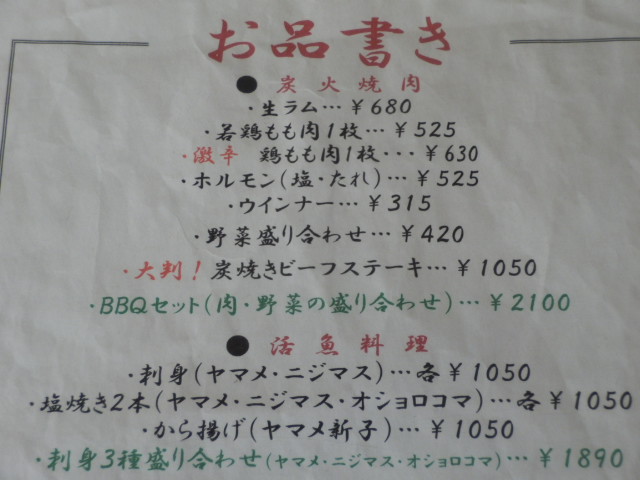 お品書き
●炭火焼肉
・生ラム…￥680
・若鶏もも肉1枚…￥525
・激辛 鶏もも肉1枚・・・￥630
・ホルモン(塩・たれ)…￥525
・ウインナー…￥315
・野菜盛り合わせ…￥420
・大判！炭焼きビーフステーキ…￥1050
・BBQセット(肉・野菜の盛り合わせ)…￥2100
●活魚料理
・刺身(ヤマメ・ニジマス)…各￥1050
・塩焼き2本(ヤマメ・ニジマス・オショロコマ)…各￥1050
・から揚げ(ヤマメ新子)…￥1050
・刺身3種盛り合わせ(ヤマメ・ニジマス・オショロコマ)…￥1890